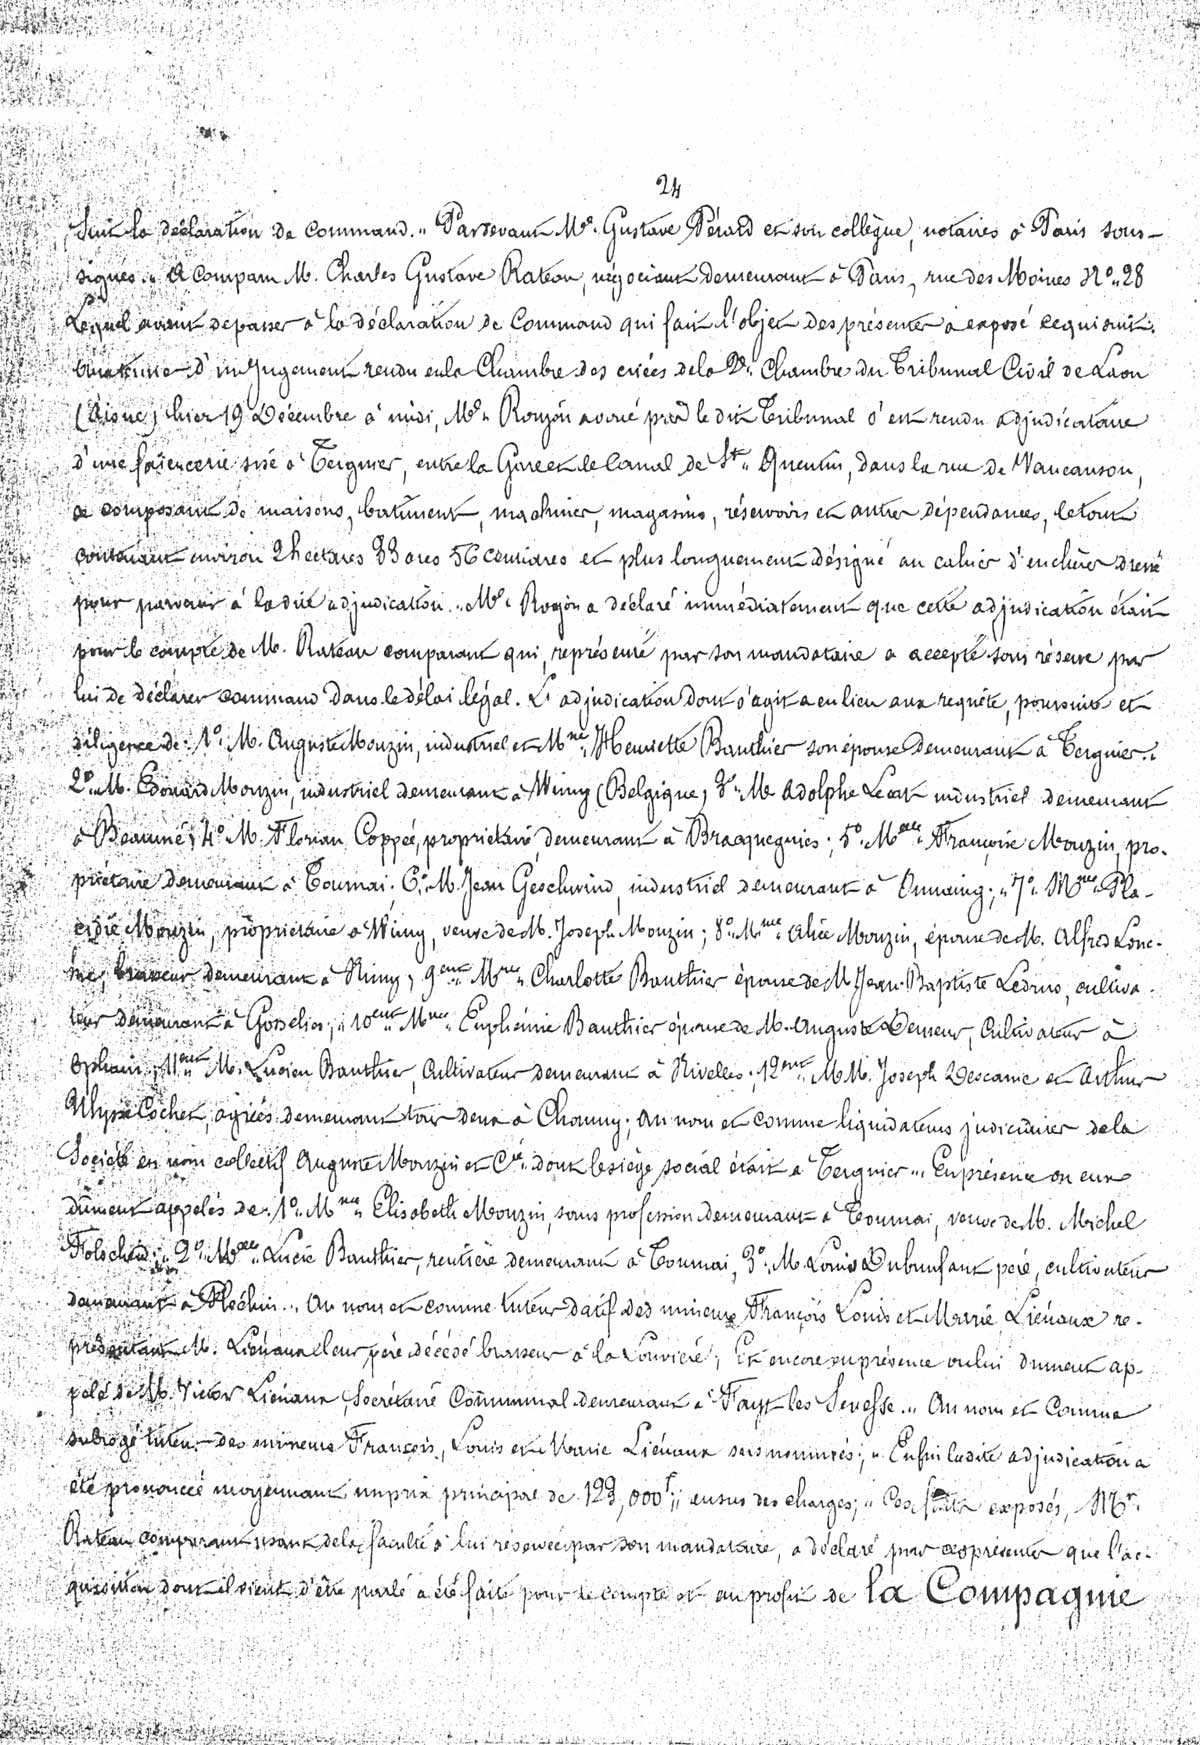 24
Suit la déclaration de command. „ Pardevant Me. Gustave Pérard et son collègue, notaires à Paris sous-
signés. „ A comparu M. Charles Gustave Rateau, négociant demeurant à Paris, rue des Moines No. 28
Lequel avant de passer à la déclaration de Command qui fait l'objet des présentes a exposé ce qui suit.
d'un Jugement rendu en la Chambre des criées de la 2e. Chambre du Tribunal Civil de Laon
(Aisne) hier 19 Décembre à midi, Me. avoué près le dit Tribunal s'est rendu adjudicataire
d'une faïencerie sise à Tergnier, entre la Gare et le Canal de St. Quentin, dans la rue de Vaucanson,
se composant de maisons, bâtiments, machines, magasins, réservoirs et autres dépendances, le tout
contenant environ 2 hectares 33 ares 56 centiares et plus longuement désigné au cahier d'enchères dressé
pour parvenir à la dite adjudication. „ Me. a déclaré immédiatement que cette adjudication était
pour le compte de M. Rateau comparant qui, représenté par son mandataire a accepté sous réserve par
lui de déclarer command dans le délai légal. L'adjudication dont s'agit a eu lieu aux requête, poursuite et
diligence de: 1o. M. Auguste Mouzin, industriel et Mme. Henriette Bauthier son épouse demeurant à Tergnier.
2o. M. Edouard Mouzin, industriel demeurant à Wimy (Belgique) 3o. M. Adolphe Lecat industriel demeurant
à 4o. M. Florian Coppée, propriétaire, demeurant à Bracquegnies; 5o. Melle. Françoise Mouzin, pro-
priétaire demeurant à Tournai. 6o. M. Jean Geschwind, industriel demeurant à Onnaing; „ 7o. Mme. Pla-
cidie Mouzin, propriétaire à Wimy, veuve de M. Joseph Mouzin; 8o. Mme. Alice Mouzin, épouse de M. Alfred
brasseur demeurant à Nimy; 9ent. Mme. Charlotte Bauthier épouse de M. Jean-Baptiste Ledrus, cultiva-
teur demeurant à Gosselies; „ 10ent. Mme. Euphémie Bauthier épouse de M. Auguste Demeur, Cultivateur à
Ophain; 11ent. M. Lucien Bauthier, Cultivateur demeurant à Nivelles; 12ent. MM. Joseph Descamie et Arthur
Ulysse Cochet, agréés demeurant tous deux à Chauny; Au nom et comme liquidateurs judiciaires de la
Société en nom collectif Auguste Mouzin et Cie. dont le siège social était à Tergnier „ En présence ou eux
dûment appelés de: 1o. Mme. Elisabeth Mouzin, sans profession demeurant à Tournai, veuve de M. Michel
2o. Melle. Lucie Bauthier, rentière demeurant à Tournai, 3o. M. Louis Dubrunfaut père, cultivateur
demeurant à Fléchin „ Au nom et comme tuteur datif des mineurs François Louis et Marie Liénaux re-
présentant M. Liénaux leur père décédé brasseur à la Louvière; Et encore en présence ou lui dûment ap-
pelé de M. Victor Liénaux, Secrétaire Communal demeurant à Fayt lez Seneffe. „ Au nom et comme
subrogé tuteur des mineurs François, Louis et Marie Liénaux susnommés; „ Enfin ladite adjudication a
été prononcée moyennant un prix principal de 123,000f; en sus des charges; „ Ces faits exposés, Mr.
Rateau comparant usant de la faculté à lui réservée par son mandataire, a déclaré par ces présentes que l'ac-
quisition dont il vient d'être parlé a été faite pour le compte et au profit de la Compagnie